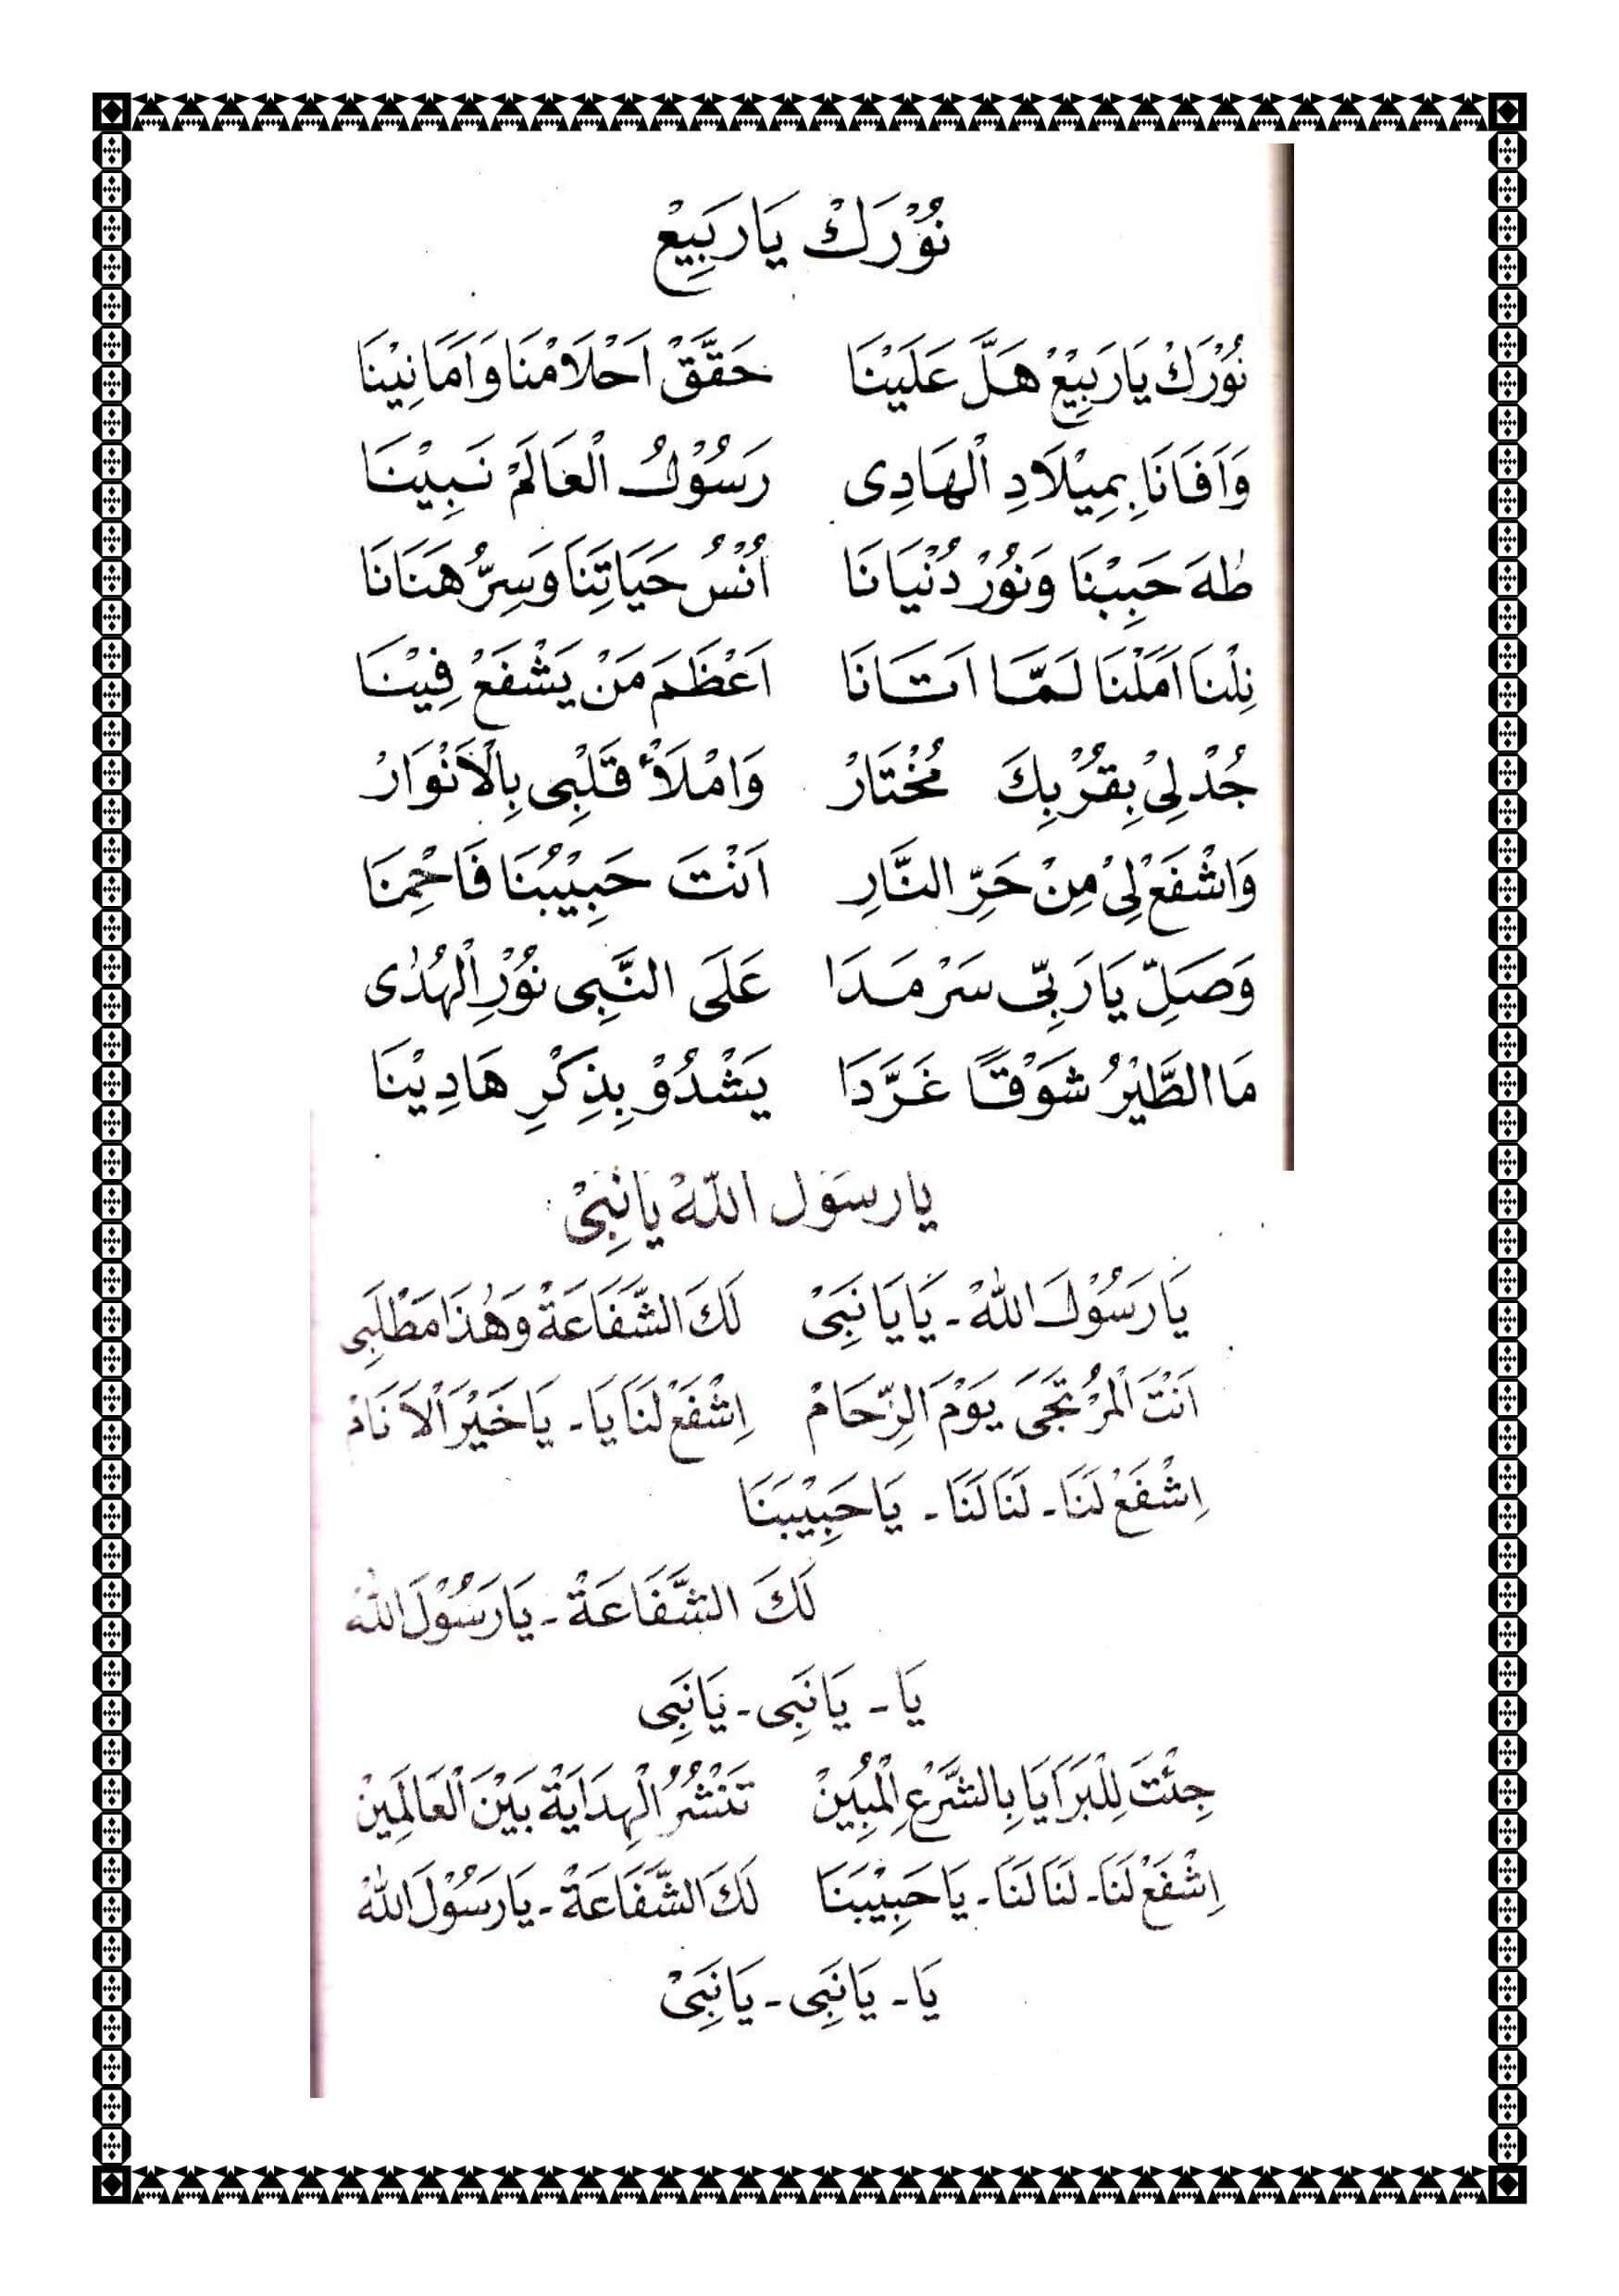 نُوْرَكْ يَارَبِيْعْ
نُوْرَكْ يَارَبِيْعْ هَلَّ عَلَيْنَا حَقَّقْ اَحْلَامْنَا وَاَمَانِيْنَا
وَاَفَانَا بِمِيْلَادِ اْلهَادِى رَسُوْلُ الْعَالَمْ نَبِيْنَا
طٰهَ حَبِيْبْنَا وَنُوْرْ دُنْيَانَا اُنْسُ حَيَاتِنَا وَسِرُّ هَنَانَا
نِلْنَا اَمَلْنَا لَمَّا اَتَانَا اَعْظَمَ مَنْ يَشْفَعْ فِيْنَا
جُدْلِيْ بِقُرْبِكَ مُخْتَارْ وَامْلَأْ قَلْبِى بِالْاَنْوَارْ
وَاشْفَعْ لِيْ مِنْ حَرِّ النَّارِ اَنْتَ حَبِيْبُنَا فَاحْمِنَا
وَصَلِّ يَارَبِّى سَرْمَدَا عَلَى النَّبِى نُوْرِ اْلهُدٰى
مَا الطَّيْرُ شَوْقًا غَرَّدَا يَشْدُوْ بِذِكْرِ هَادِيْنَا
يارسَوْل اللّٰهْ يَانَبِيْ
يَارَسُوْلَ اللّٰهْ - يَايَانَبِيْ لَكَ الشَّفَاعَةْ وَهٰذَا مَطْلَبِى
اَنْتَ اْلمُرْتَجَى يَوْمَ الزِّحَامْ اِشْفَعْ لَنَا يَا - يَاخَيْرَ اْلاَنَامْ
اِشْفَعْ لَنَا - لَنَا لَنَا - يَاحَبِيْبَنَا
لَكَ الشَّفَاعَةْ - يَارَسُوْلَ اللّٰهْ
يَا - يَانَبِى - يَانَبِى
جِئْتَ لِلْبَرَايَا بِالشَّرْعِ اْلمُبِيْنْ تَنْشُرُ الْهِدَايَةْ بَيْنَ الْعَالَمِيْنْ
اِشْفَعْ لَنَا - لَنَا لَنَا - يَاحَبِيْبَنَا لَكَ الشَّفَاعَةْ - يَارَسُوْلَ اللّٰهْ
يَا - يَانَبِى - يَانَبِيْ